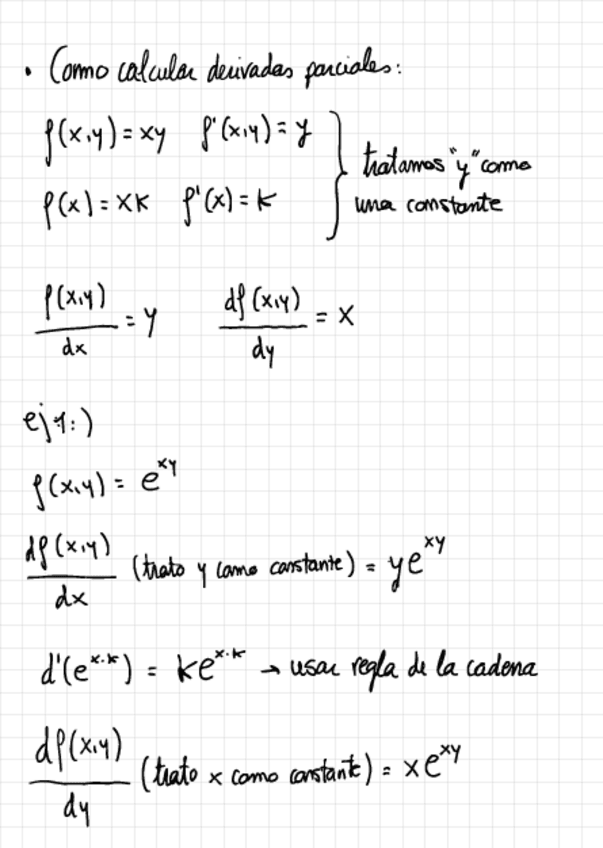 • Como calcular derivadas parciales:
f(x,y) = xy f'(x,y) = y
f(x) = xk f'(x) = k
tratamos "y" como
una constante
f(x,y)/dx = y df(x,y)/dy = x
ej1:)
f(x,y) = e^xy
df(x,y)/dx (trato y como constante) = ye^xy
d'(e^x·k) = ke^x·k → usar regla de la cadena
df(x,y)/dy (trato x como constante) = xe^xy